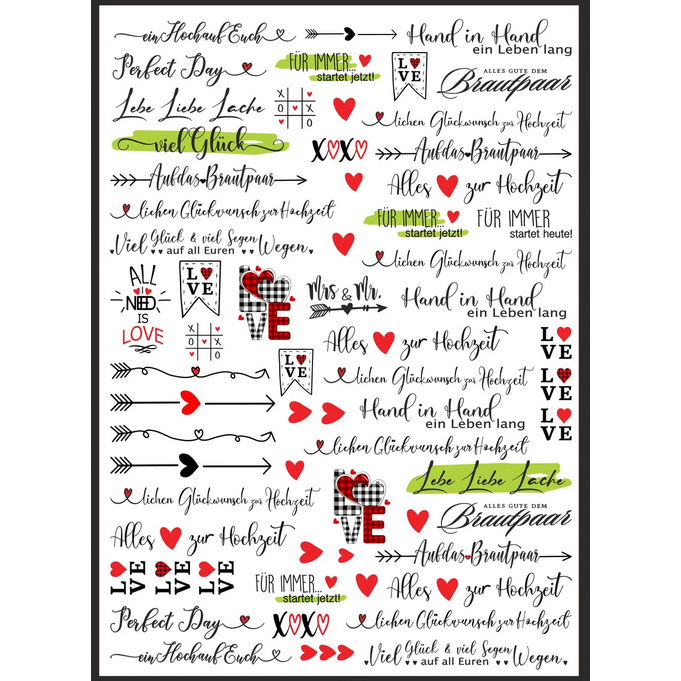 ein Hoch auf Euch
Hand in Hand
ein Leben lang
Perfect Day
FÜR IMMER...
startet jetzt!
LOVE
ALLES GUTE DEM
Brautpaar
Lebe Liebe Lache
X O
O X
X O
lichen Glückwunsch zur Hochzeit
viel Glück
XOXO
Auf das Brautpaar
Auf das Brautpaar
Alles zur Hochzeit
lichen Glückwunsch zur Hochzeit
FÜR IMMER...
startet jetzt!
FÜR IMMER
startet heute!
Viel Glück & viel Segen
auf all Euren Wegen
lichen Glückwunsch zur Hochzeit
ALL
YOU
NEED
IS
LOVE
LOVE
LOVE
Mrs & Mr.
Hand in Hand
ein Leben lang
X O
O X
X O
Alles zur Hochzeit
LOVE
LOVE
lichen Glückwunsch zur Hochzeit
LOVE
Hand in Hand
ein Leben lang
LOVE
lichen Glückwunsch zur Hochzeit
Lebe Liebe Lache
lichen Glückwunsch zur Hochzeit
LOVE
ALLES GUTE DEM
Brautpaar
Alles zur Hochzeit
Auf das Brautpaar
LOVE LOVE LOVE
FÜR IMMER...
startet jetzt!
Alles zur Hochzeit
Perfect Day
XOXO
lichen Glückwunsch zur Hochzeit
ein Hoch auf Euch
Viel Glück & viel Segen
auf all Euren Wegen